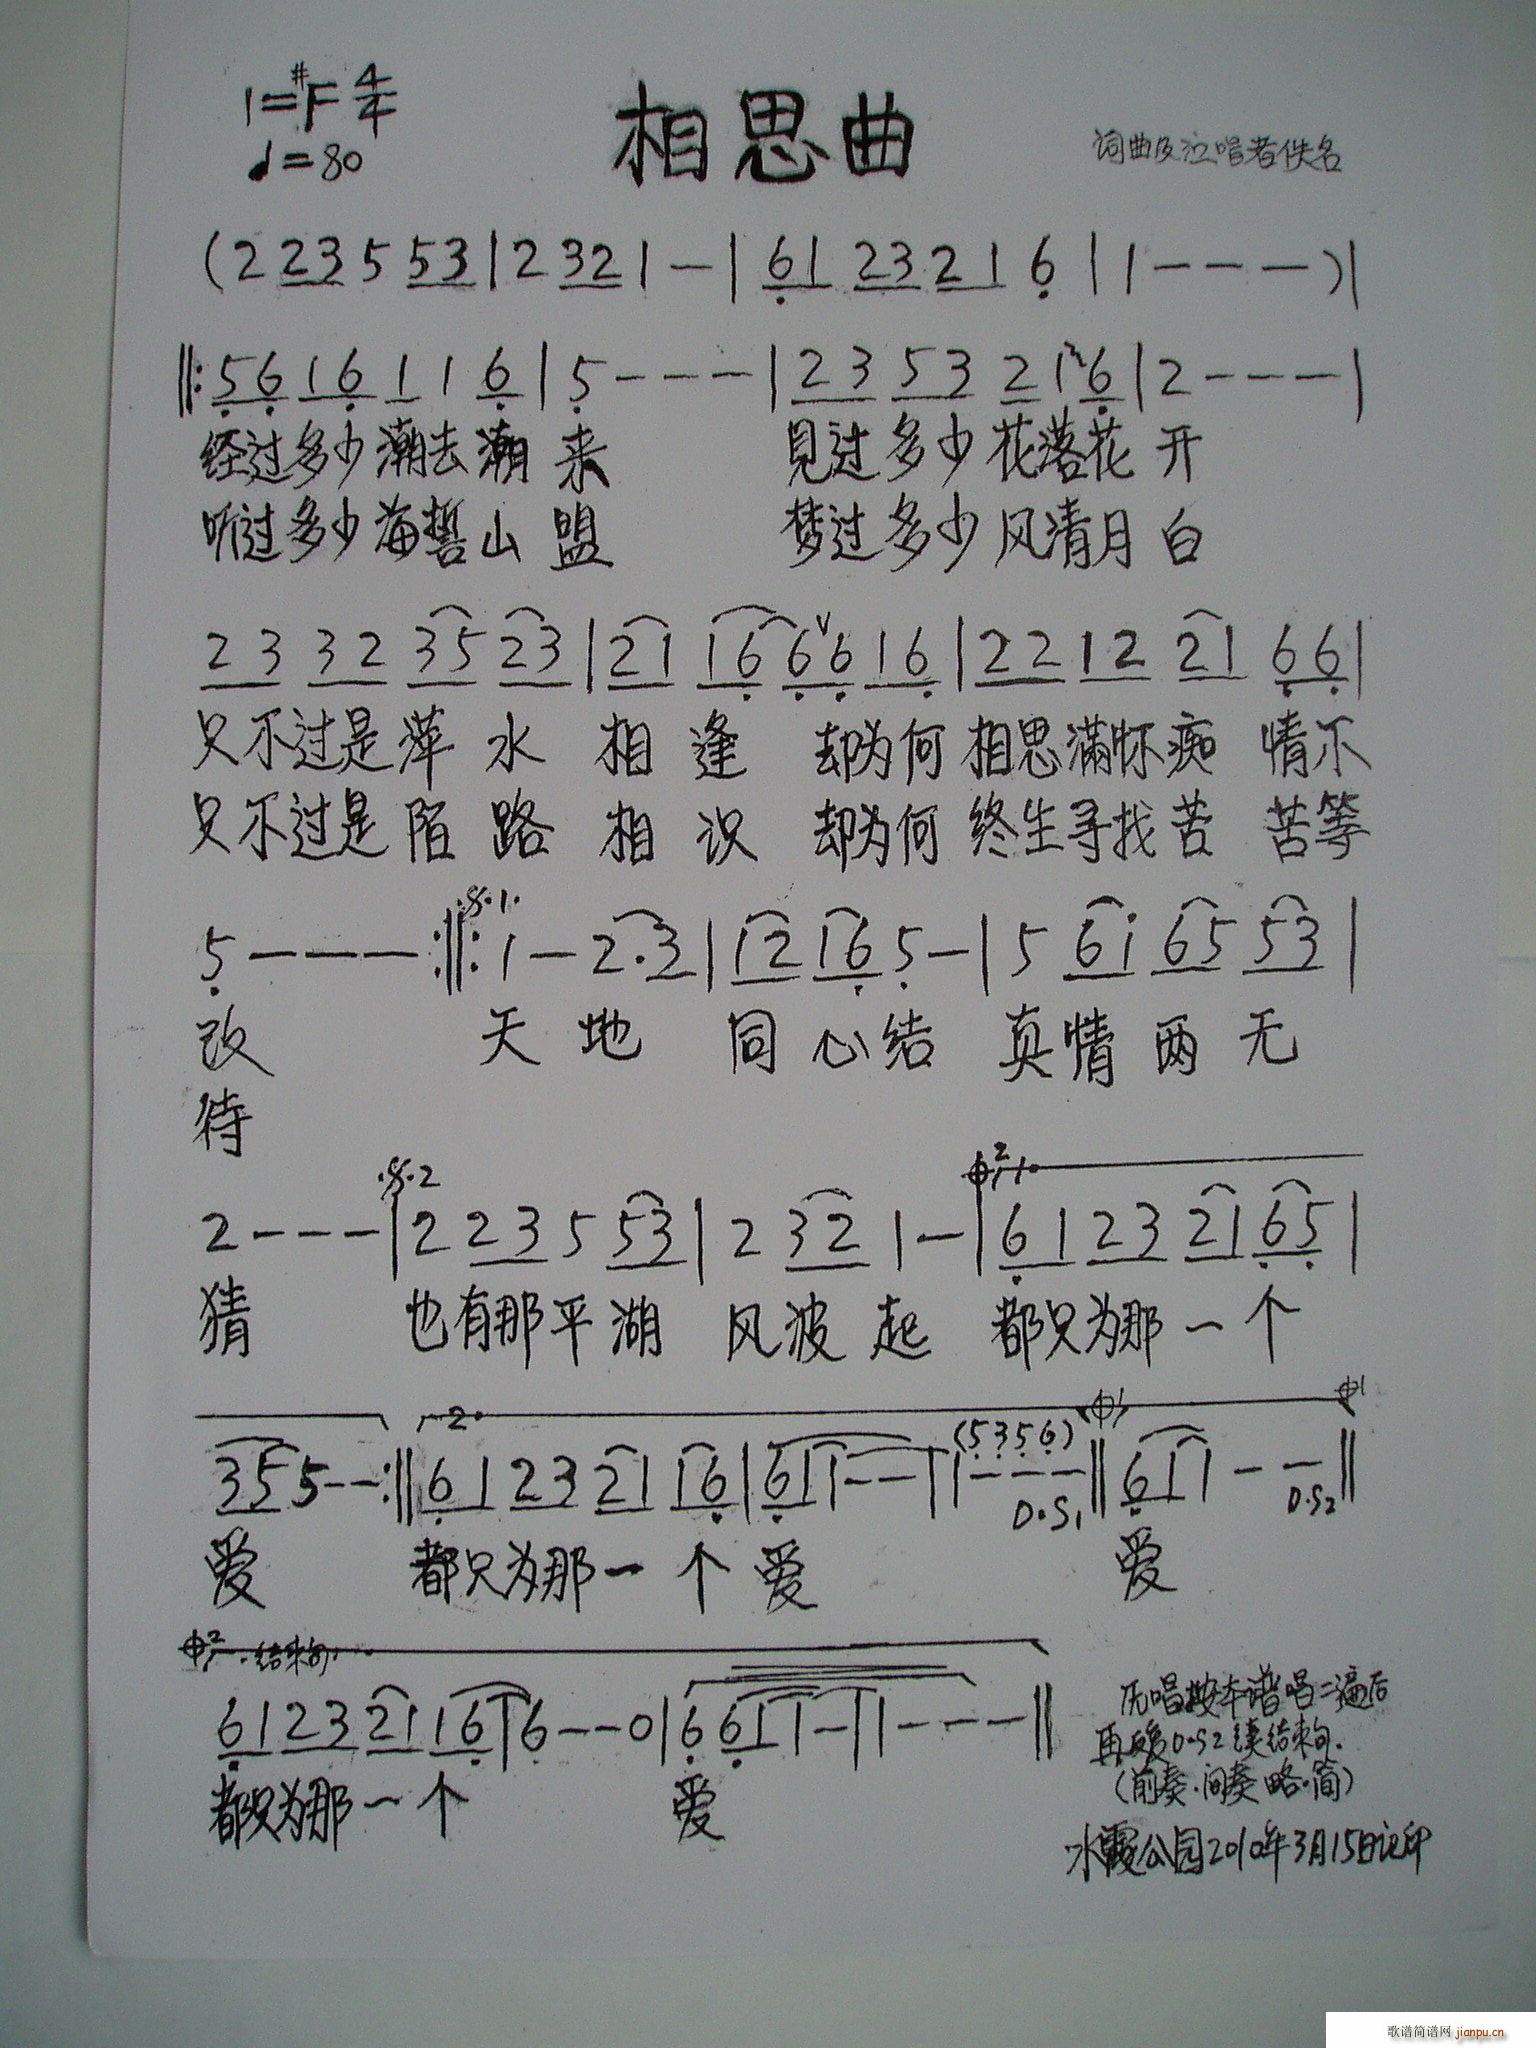 1=#F 4/4
相思曲
♩=80
词曲及泣唱者佚名
(2 2 3 5 5 3 | 2 3 2 1 — | 6 1 2 3 2 1 6 | 1 — — — )|
‖: 5 6 1 6 1 1 6 | 5 — — — | 2 3 5 3 2 1 6 | 2 — — — |
经过多少潮去潮来 见过多少花落花开
听过多少海誓山盟 梦过多少风清月白
2 3 3 2 3 5 2 3 | 2 1 1 6 6 V 6 1 6 | 2 2 1 2 2 1 6 6 |
只不过是萍水相逢 却为何相思满怀痴情不
只不过是陌路相识 却为何终生寻找苦苦等
5 — — — :‖: 1 — 2 · 3 | 1 2 1 6 5 — | 5 6 1 6 5 5 3 |
改 天地同心结 真情两无
待
2 — — — | 2 2 3 5 5 3 | 2 3 2 1 — | 6 1 2 3 2 1 6 5 |
猜 也有那平湖风波起 都只为那一个
2.
(5 3 5 6)
3 5 5 — — :‖ 6 1 2 3 2 1 1 6 | 6 1 1 — — | 1 — — — ‖ 6 1 1 — — ‖
D.S1 D.S2
爱 都只为那一个爱 爱
结束句
6 1 2 3 2 1 1 6 | 6 — — 0 | 6 6 1 1 — | 1 — — — ‖
都只为那一个 爱
唱按本谱唱二遍后
再反复D.S2接结束句.
(前奏.间奏略.简)
冰霞公园2010年3月15日记印
歌谱简谱网 jianpu.cn